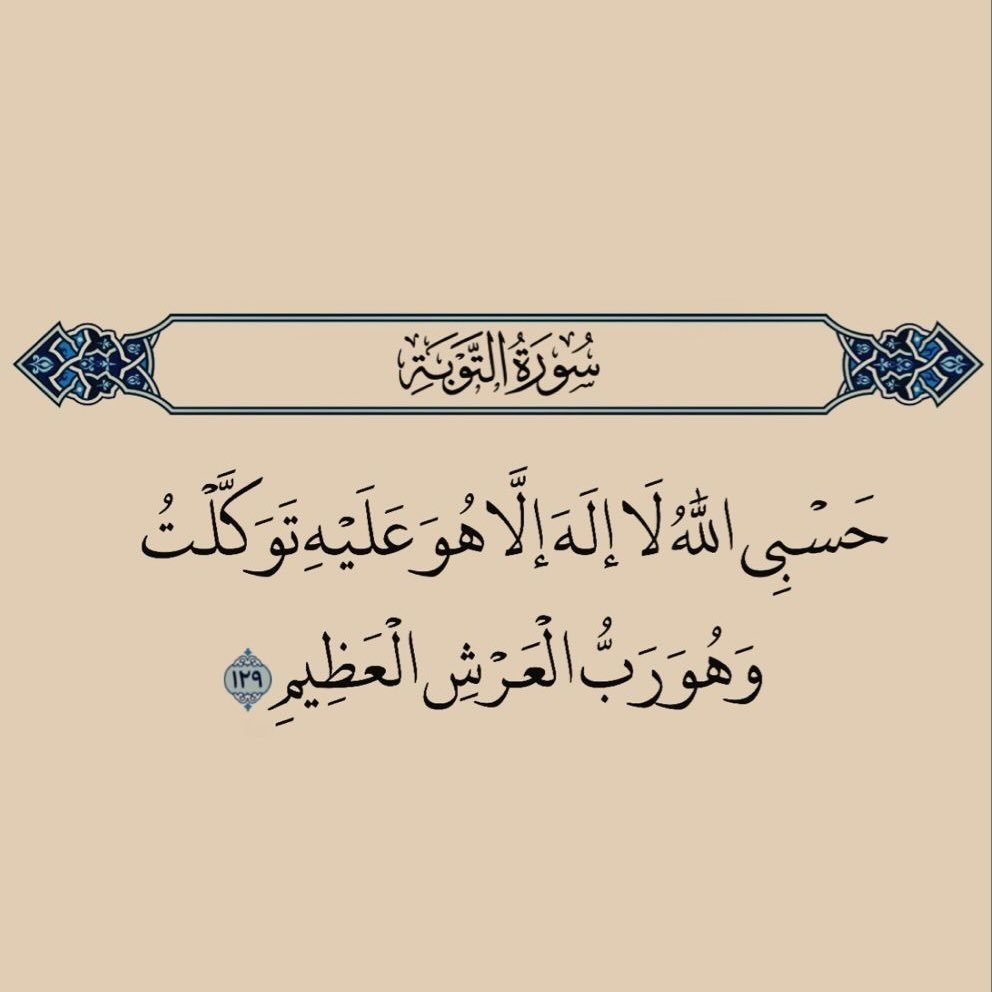 سُورَةُ التَّوْبَةِ
حَسْبِيَ اللَّهُ لَا إِلَهَ إِلَّا هُوَ عَلَيْهِ تَوَكَّلْتُ
وَهُوَ رَبُّ الْعَرْشِ الْعَظِيمِ ١٢٩